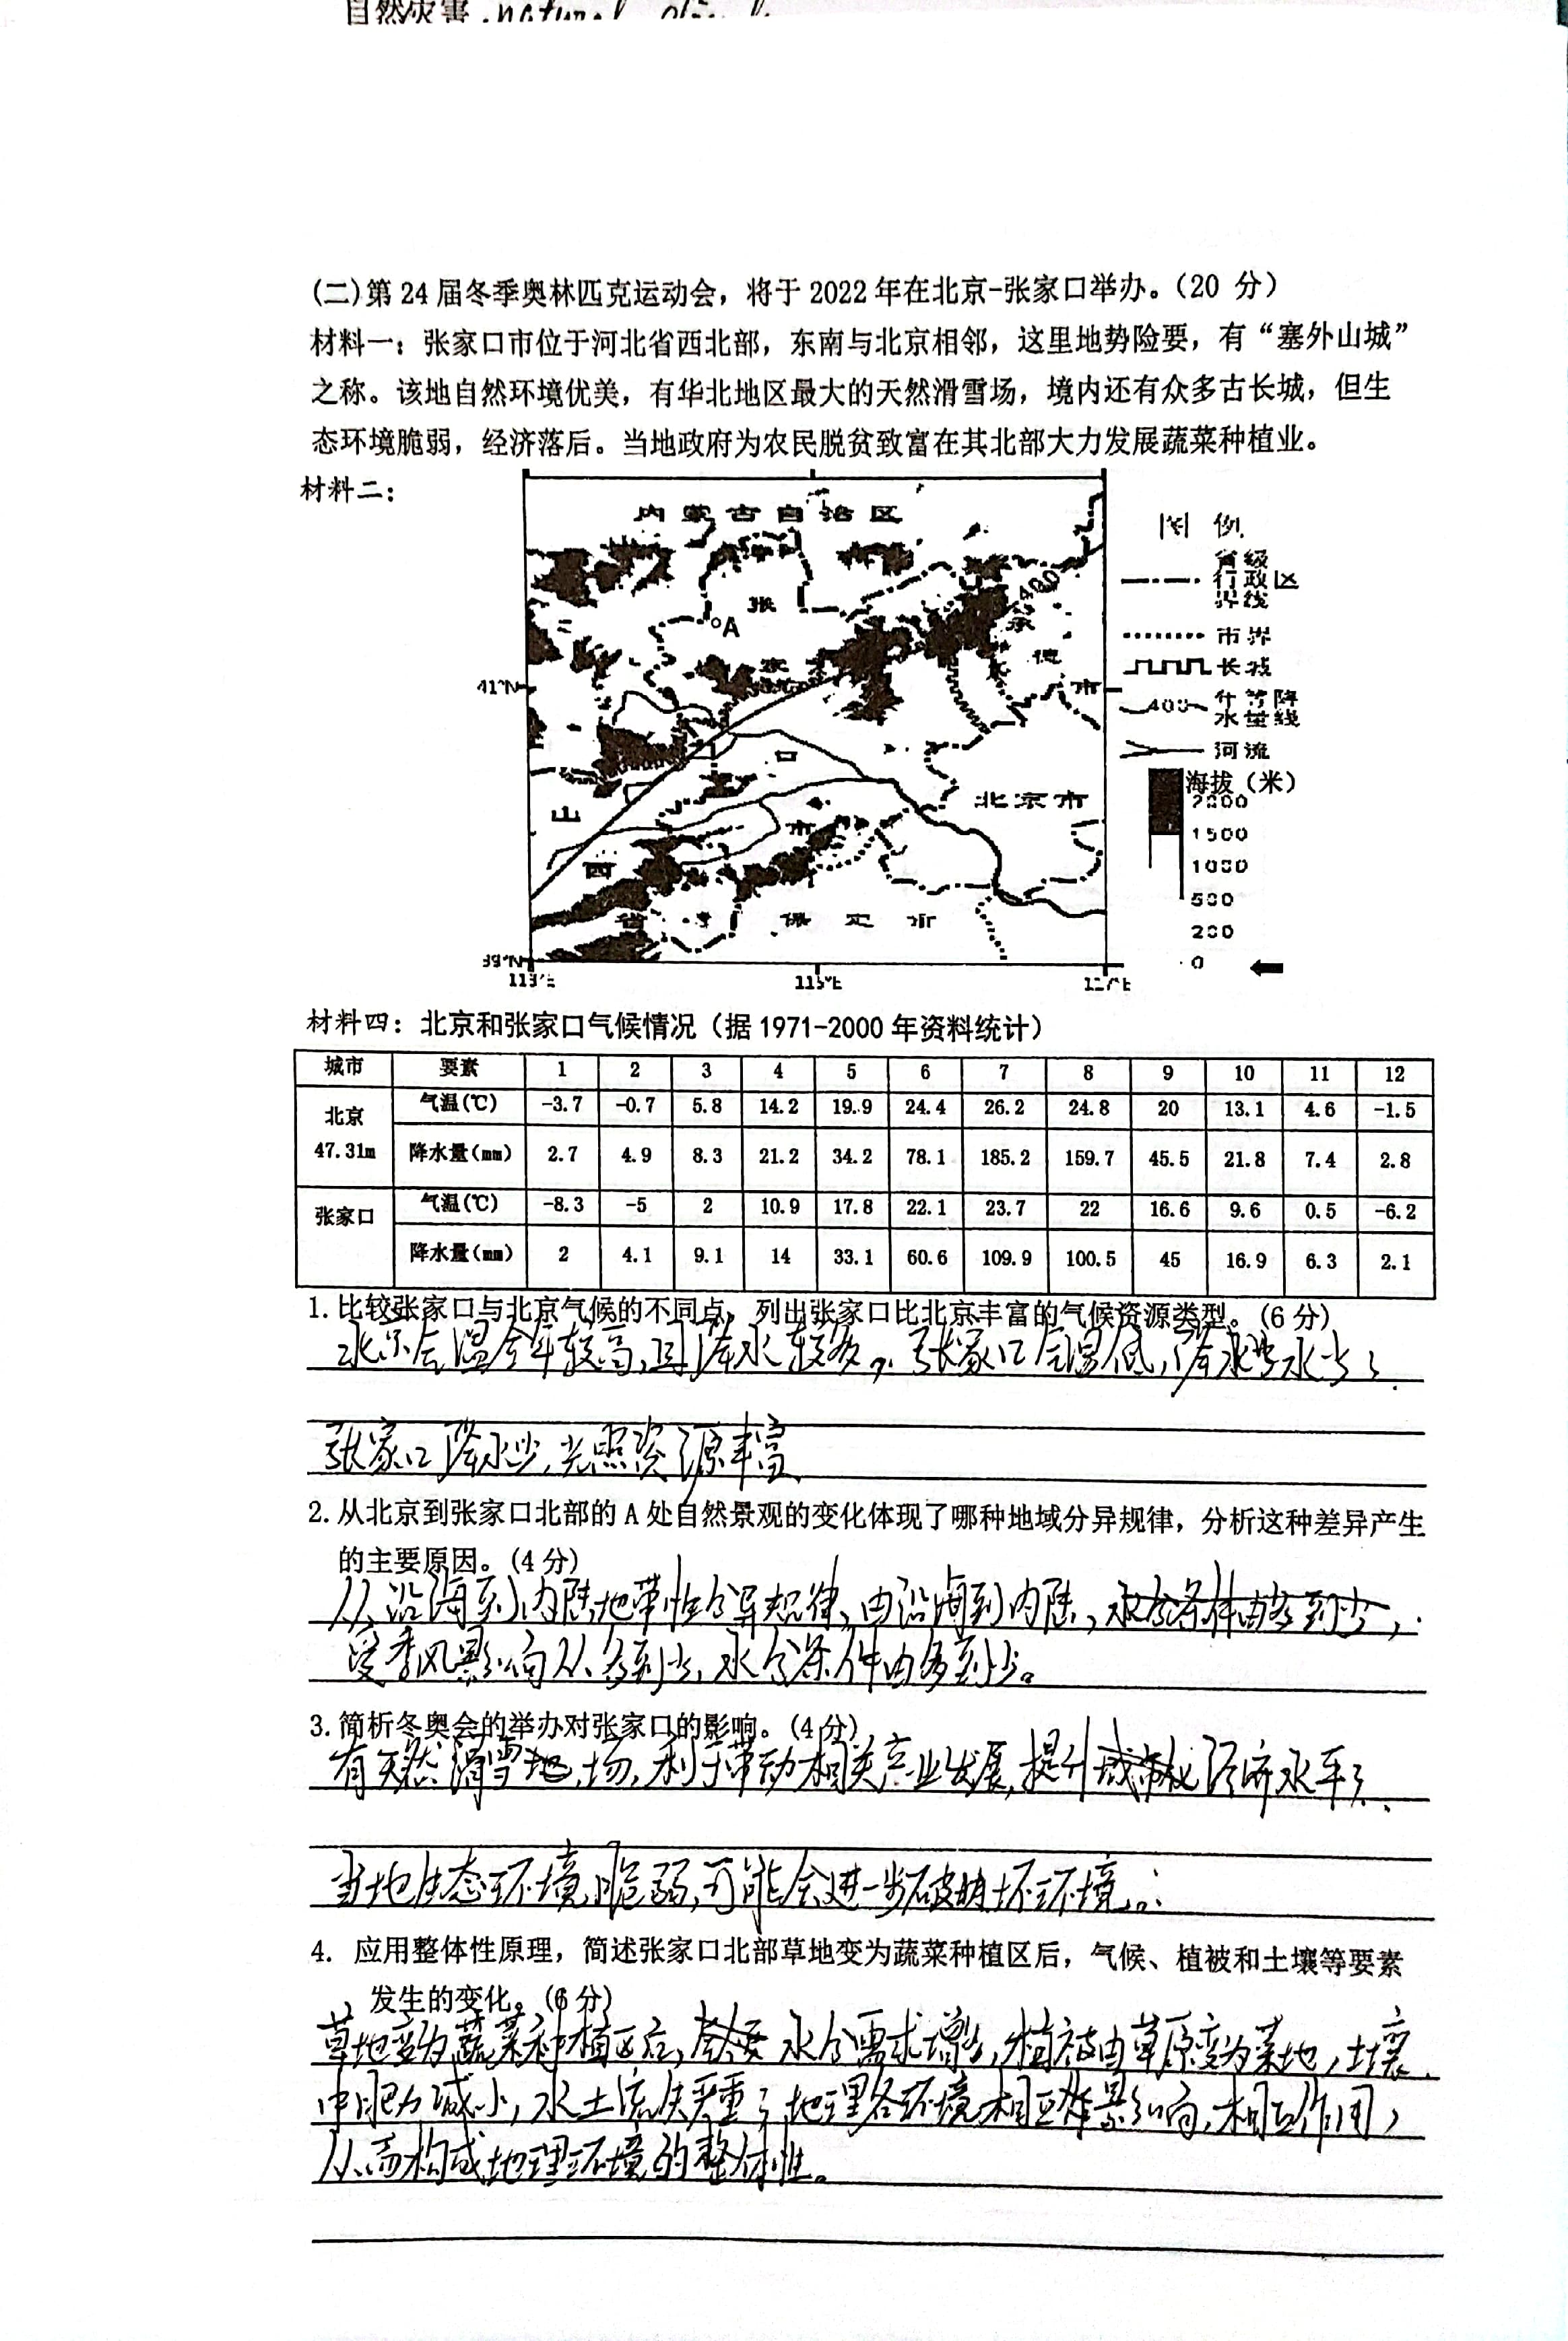 自然灾害.natural
(二)第 24 届冬季奥林匹克运动会，将于 2022 年在北京-张家口举办。(20 分)
材料一：张家口市位于河北省西北部，东南与北京相邻，这里地势险要，有“塞外山城”
之称。该地自然环境优美，有华北地区最大的天然滑雪场，境内还有众多古长城，但生
态环境脆弱，经济落后。当地政府为农民脱贫致富在其北部大力发展蔬菜种植业。
材料二：
内蒙古自治区
张
A
家
承
德
市
400
41°N
口
市
北京市
山
西
省
保定市
39°N
113°E
115°E
117°E
图例
省级
行政区
界线
市界
长城
400 年等降
水量线
河流
海拔（米）
2000
1500
1000
500
200
0
材料四：北京和张家口气候情况（据 1971-2000 年资料统计）
城市 要素 1 2 3 4 5 6 7 8 9 10 11 12
北京 47.31m 气温(℃) -3.7 -0.7 5.8 14.2 19.9 24.4 26.2 24.8 20 13.1 4.6 -1.5
降水量(mm) 2.7 4.9 8.3 21.2 34.2 78.1 185.2 159.7 45.5 21.8 7.4 2.8
张家口 气温(℃) -8.3 -5 2 10.9 17.8 22.1 23.7 22 16.6 9.6 0.5 -6.2
降水量(mm) 2 4.1 9.1 14 33.1 60.6 109.9 100.5 45 16.9 6.3 2.1
1.比较张家口与北京气候的不同点，列出张家口比北京丰富的气候资源类型。(6 分)
北京气温全年较高,且降水较多,张家口气温低,降水少;
张家口降水少,光照资源丰富
2.从北京到张家口北部的 A 处自然景观的变化体现了哪种地域分异规律，分析这种差异产生
的主要原因。(4 分)
从沿海到内陆地带性分异规律,由沿海到内陆,水分条件由多到少,
受季风影响从多到少,水分条件由多到少。
3.简析冬奥会的举办对张家口的影响。(4 分)
有天然滑雪场,利于带动相关产业发展,提升经济水平;
当地生态环境脆弱,可能会进一步破坏环境。
4. 应用整体性原理，简述张家口北部草地变为蔬菜种植区后，气候、植被和土壤等要素
发生的变化。(6 分)
草地变为蔬菜种植区后,水分需求增多,植被由草原变为菜地,土壤
中肥力减小,水土流失严重;地理各环境相互影响,相互作用,
从而构成地理环境的整体性。